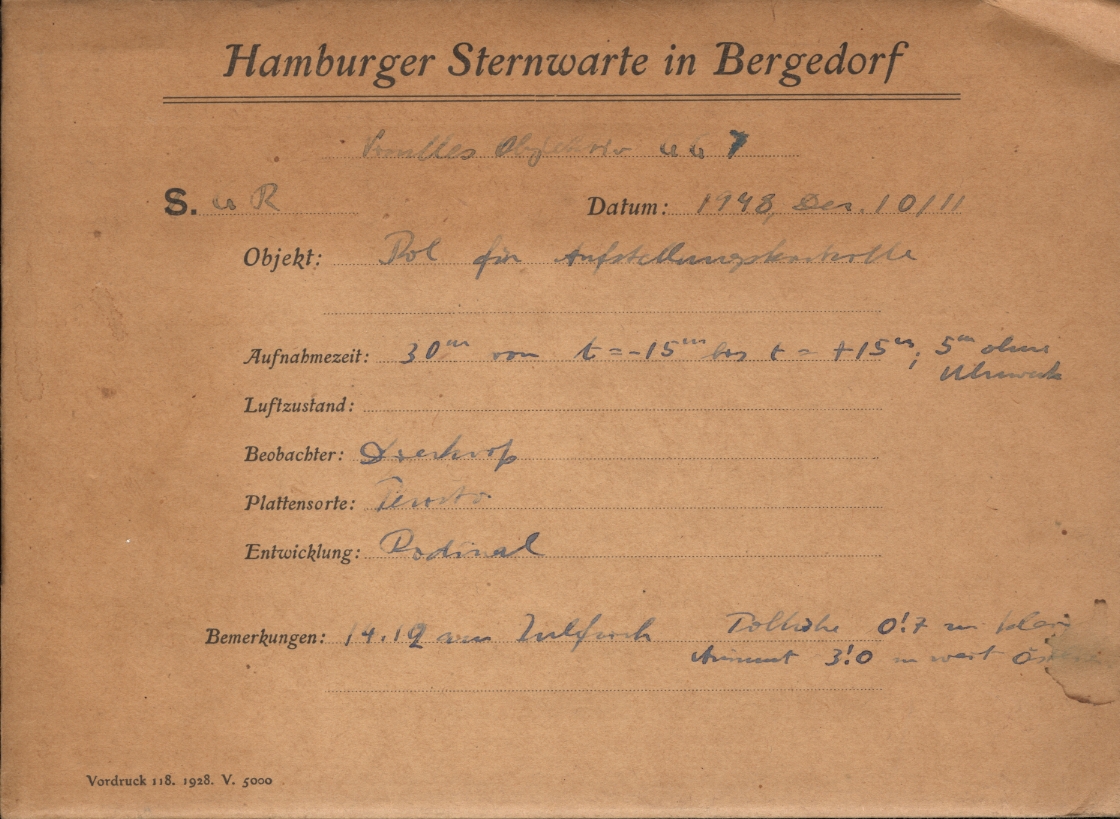 Hamburger Sternwarte in Bergedorf
7
S. R Datum: 1948, Dez. 10/11
Objekt: Pol für Aufstellungskontrolle
Aufnahmezeit: 30m von t = -15m bis t = +15m; 5m ohne
Uhrwerk
Luftzustand:
Beobachter:
Plattensorte: Perutz
Entwicklung: Rodinal
Bemerkungen: 14.19 Polhöhe 0!7 zu klein
Azimut 3!0 zu weit
Vordruck 118. 1928. V. 5000